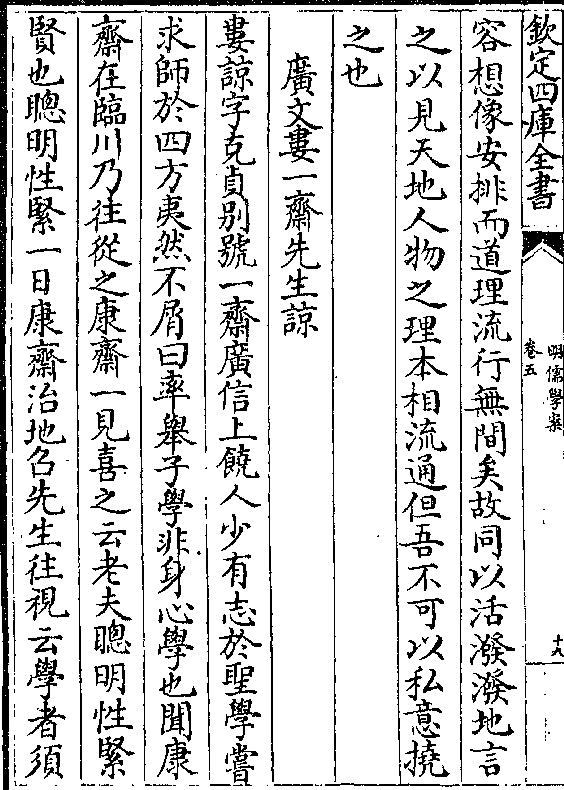 欽定四庫全書
明儒學案
卷五
十八
容想像安排而道理流行無間矣故同以活潑潑地言
之以見天地人物之理本相流通但吾不可以私意撓
之也
廣文婁一齋先生諒
婁諒字克貞别號一齋廣信上饒人少有志於聖學嘗
求師於四方夷然不屑曰率舉子學非身心學也聞康
齋在臨川乃往從之康齋一見喜之云老夫聰明性緊
賢也聰明性緊一日康齋治地召先生往視云學者須